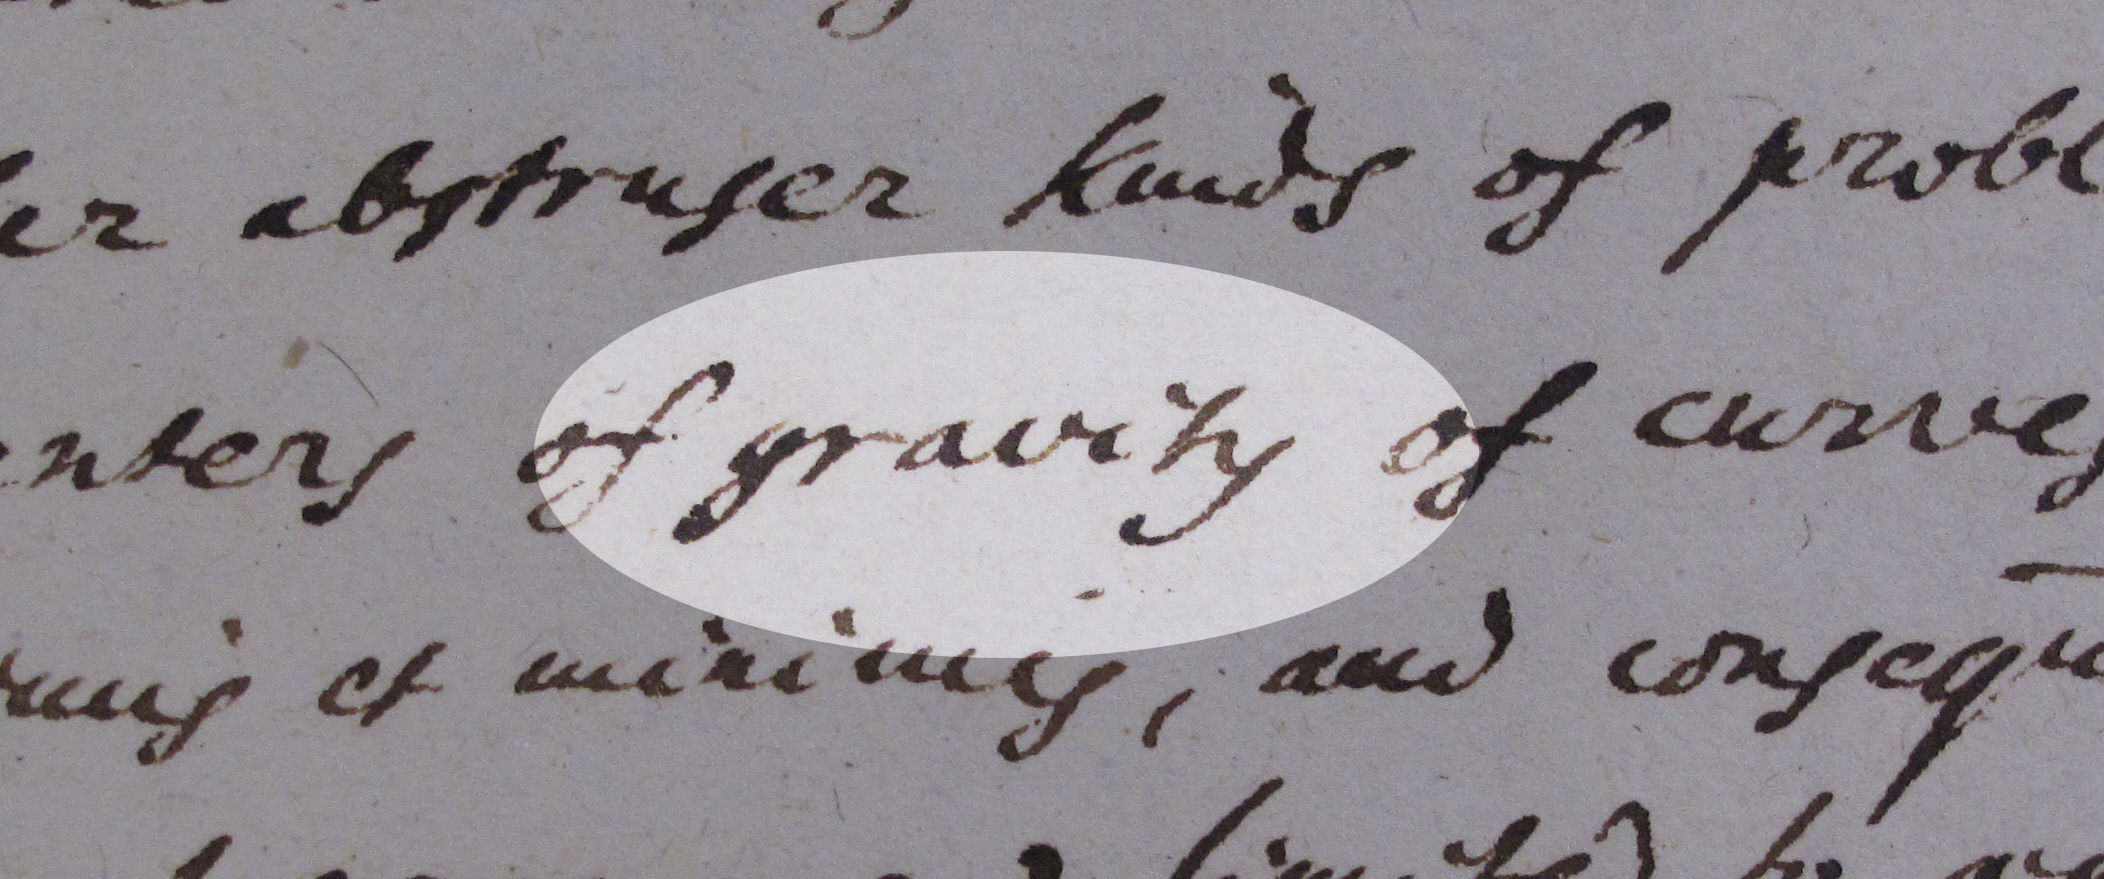 abstruser kinds of probl
enters of gravity of curves
et minimis, and consequ
limited to